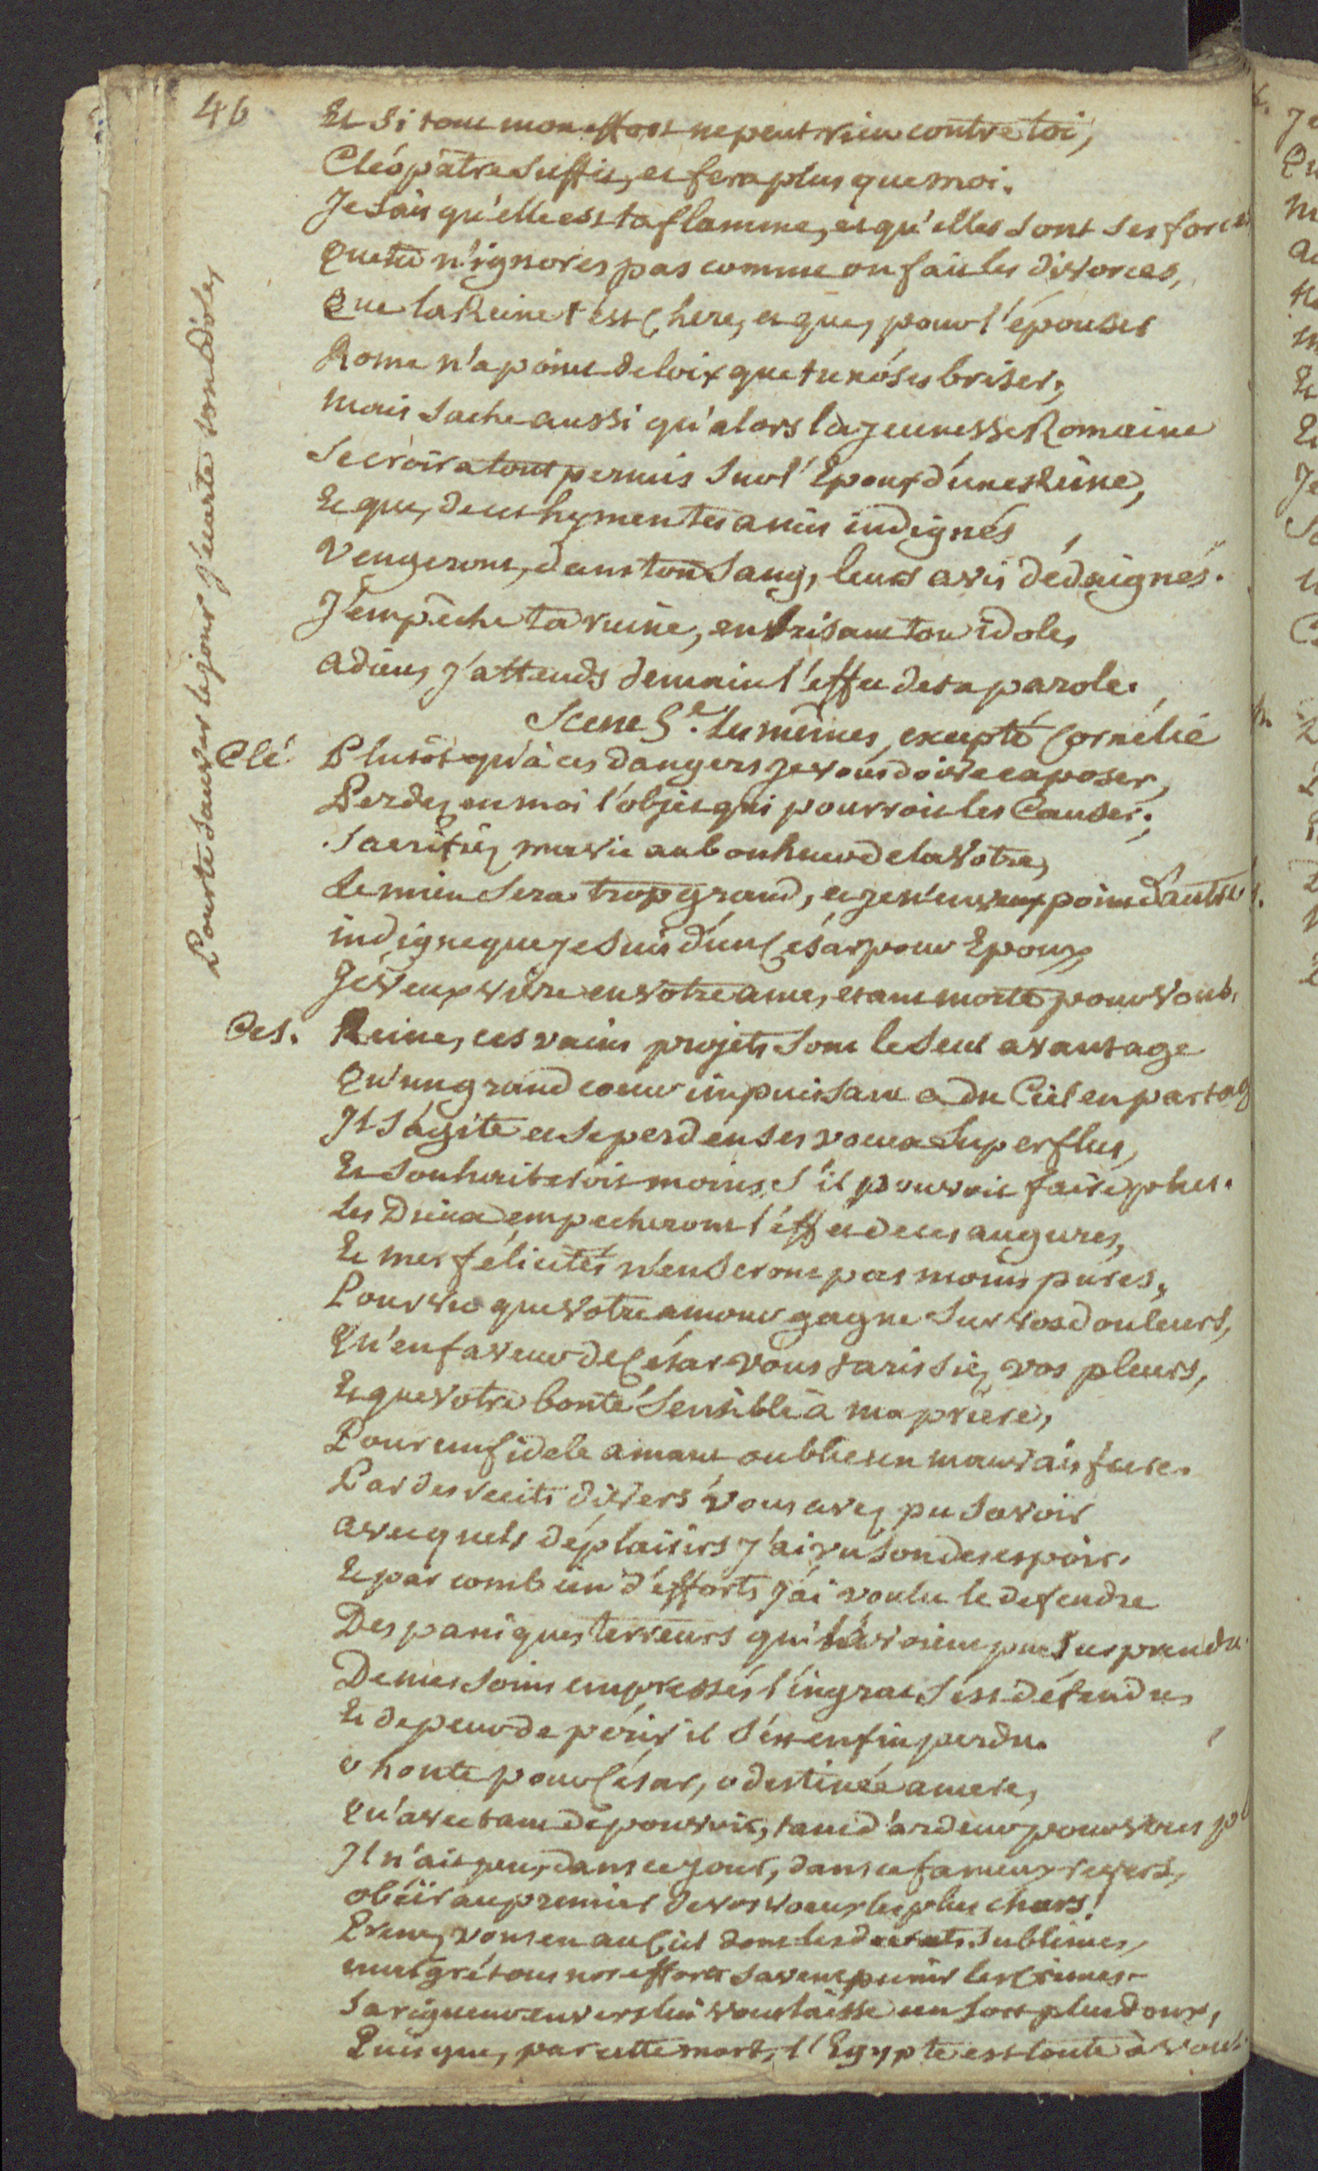 46
Et si tout mon effort ne peut rien contre toi,
Cléopâtre suffit, et fera plus que moi.
Je sais qu'elle est ta flamme, et qu'elles sont ses forces
que tu n'ignores pas comme on fait les divorces,
Que la Reine t'est Chere, et que, pour l'épouser
Rome n'a point de loix que tu n'ôses briser,
mais sache aussi qu'alors la jeunesse Romaine
se croira tout permis sur l'Epoux d'une Reine,
Et que, de cet hymen tes amis indignés
Vengeront, dans ton sang, leurs avis dédaignés.
J'empêche ta ruine, en brisant ton idole,
adieu, j'attends demain l'effet de ta parole.
Pour te sauver le jour j'écarte ton idole,
Scene 5e. les mêmes, excepté Cornélie
Clé Plutôt qu'à ces dangers je vous doive exposer,
Perdez en moi l'objet qui pourroit les Causer;
Sacrifiez ma vie au bonheur de la Votre,
Le mien sera trop grand, et je n'en veux point d'autre
indigne que je suis d'un César pour Epoux
Je veux vivre en votre ame, etant morte pour vous.
Ces. Reine, ces vains projets sont le seul avantage
Qu'un grand coeur impuissant a du Ciel en partag
Il s'agite et se perd en ses voeux superflus,
Et souhaiteroit moins s'il pouvoit faire plus.
Les Dieux empecheront l'éffet de ces augures,
Et mes félicités n'en seront pas moins pures,
Pourvu que votre amour gagne sur vos douleurs,
Qu'en faveur de César vous tarissiez vos pleurs,
Et que votre bonté sensible à ma prière,
Pour un fidele amant oublie un mauvais frere.
Par des recits divers vous avez pu savoir
avec quels déplaisirs j'ai vu son desespoir.
Et par combien d'efforts j'ai voulu le defendre
Des paniques terreurs qui l'avoient pu surprendre.
De mes soins empressés l'ingrat s'est défendu,
Et de peur de périr il s'est enfin perdu.
o honte pour César, o destinée amere,
Qu'avec tant de pouvoir, tant d'ardeur pour vous
Il n'ait peu, dans ce jour, dans ce fameux revers,
obéir au premier de vos voeux les plus chers!
Prenez vous en au Ciel dont les decrets sublimes,
malgré tous nos efforts savent punir les Crimes.
Sa rigueur envers lui vous laisse un sort plus doux,
Puisque, par cette mort, l'Egypte est toute à vous.